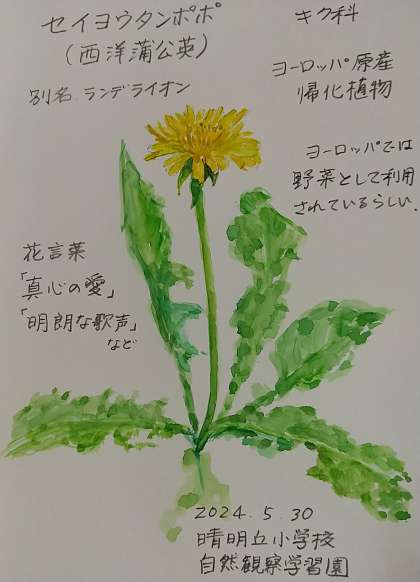 セイヨウタンポポ
(西洋蒲公英)
別名.ランデライオン
キク科
ヨーロッパ原産
帰化植物
ヨーロッパでは
野菜として利用
されているらしい.
花言葉
「真心の愛」
「明朗な歌声」
など
2024.5.30
晴明丘小学校
自然観察学習園